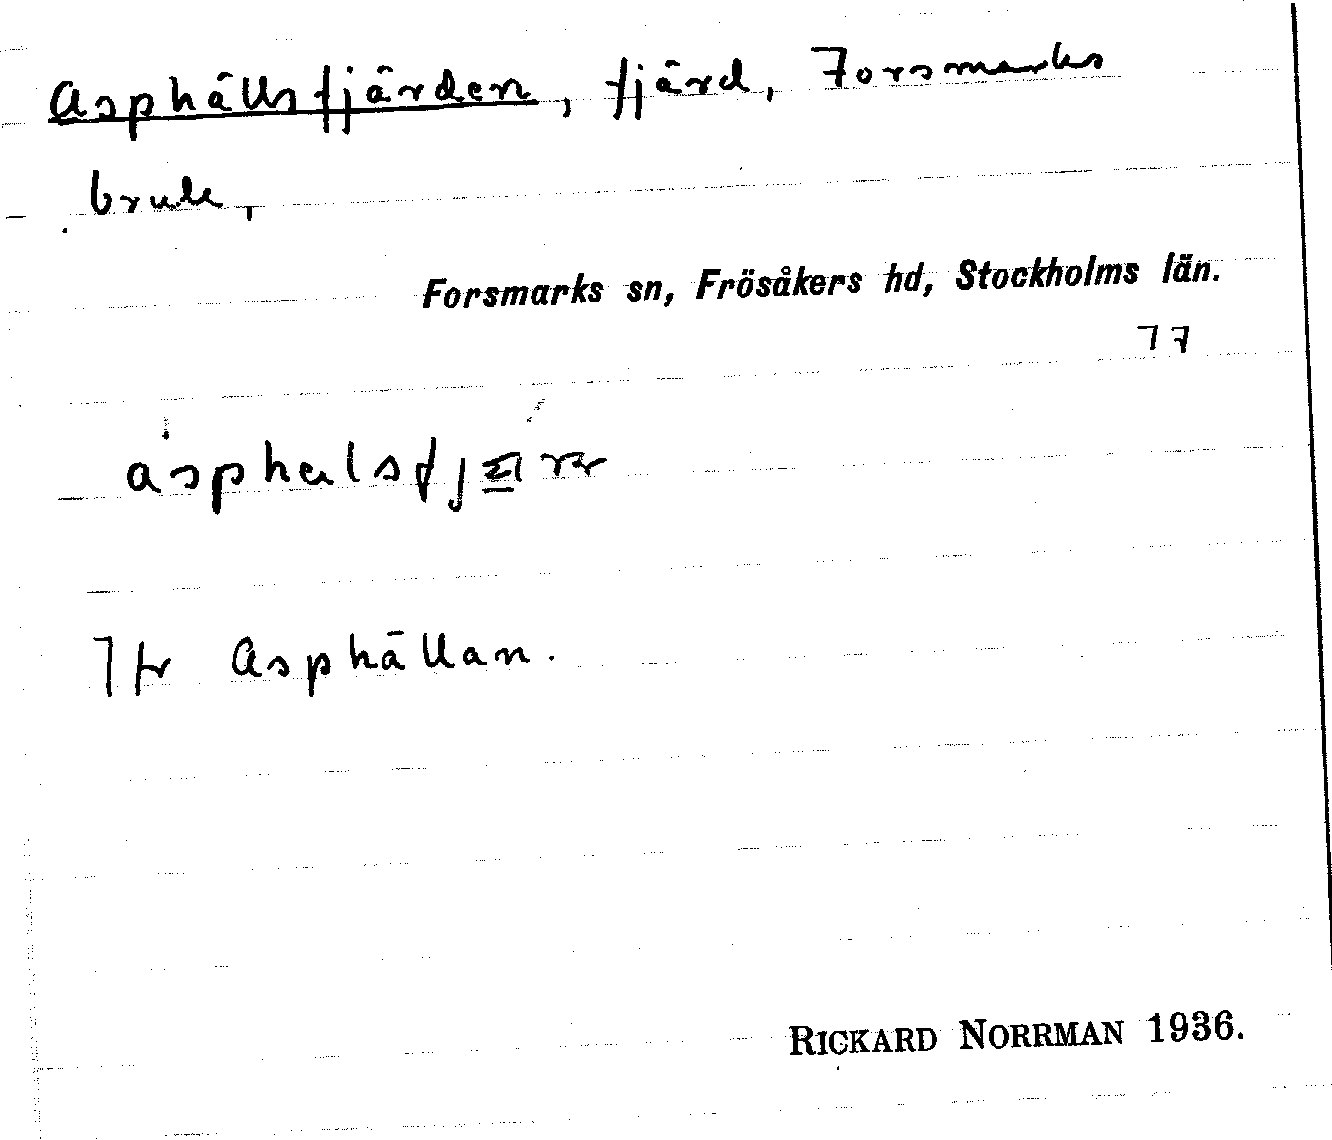 Asphällsfjärden, fjärd, Forsmarks
bruk,
Forsmarks sn, Frösåkers hd, Stockholms län.
77
Jfr Asphällan.
RICKARD NORRMAN 1936.